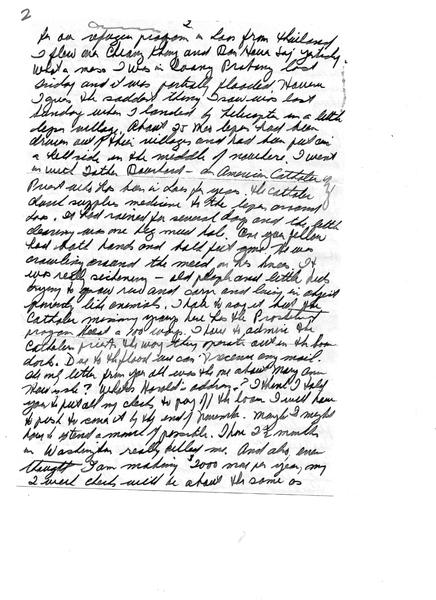 2
2
for our refugee program in Laos from Thailand
I flew over Chiang Khong and Ban Houei Sai yesterday.
What a mess I was in Luang Prabang last
Friday and it was partially flooded. However
I guess the saddest thing I saw was last
Sunday when I landed by helicopter in a little
leper village. About 90 Meo lepers had been
driven out of their villages and had been put on
a hillside in the middle of nowhere. I went
in with Father Bouchard - an American Catholic
Priest who has been in Laos for years. The Catholic
church supplies medicine to the lepers around
Laos. It had rained for several days and the little
clearing was one big mud hole. One poor fellow
had both hands and half his feet gone. He was
crawling around the mud on his knees. It
was really sickening - old people and little kids
trying to grow rice and corn and living in abject
poverty like animals. I hate to say it but the
Catholic missionary group here has the Protestant
program beat a 100 ways. I have to admire the
Catholic priests the way they operate out in the boon
docks. Due to the flood we can't receive any mail.
The only letter from you all was the one about Mary Ann
How is she? What's Harold's address? I think I told
you to put all my checks to pay off the loan. I will have
to push to cover it by the end of November. Maybe I might
have to extend a month if possible. Those 2½ months
in Washington really killed me. And also, even
though I am making $2000 more per year, my
2 week checks will be about the same as